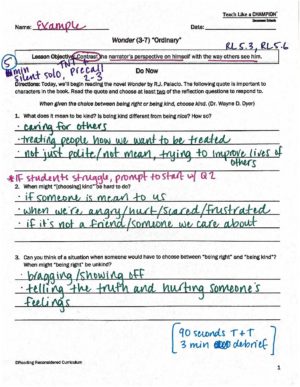 Teach Like a CHAMPION
Name: Example Date:
Wonder (3-7) "Ordinary"
RL5.3, RL5.6
Lesson Objective: Contrast the narrator's perspective on himself with the way others see him.
5 min silent solo, TNT, precall 2-3
Do Now
Directions: Today, we'll begin reading the novel Wonder by R.J. Palacio. The following quote is important to
characters in the book. Read the quote and choose at least two of the reflection questions to respond to.
When given the choice between being right or being kind, choose kind. (Dr. Wayne D. Dyer)
1. What does it mean to be kind? Is being kind different from being nice? How so?
- caring for others
- treating people how we want to be treated
- not just polite/not mean, trying to improve lives of
others
*IF students struggle, prompt to start w/ Q2
2. When might "[choosing] kind" be hard to do?
- if someone is mean to us
- when we're angry/hurt/scared/frustrated
- if it's not a friend/someone we care about
3. Can you think of a situation when someone would have to choose between "being right" and "being kind"?
When might "being right" be unkind?
- bragging/showing off
- telling the truth and hurting someone's
feelings
90 seconds T+T
3 min debrief
©Reading Reconsidered Curriculum
1